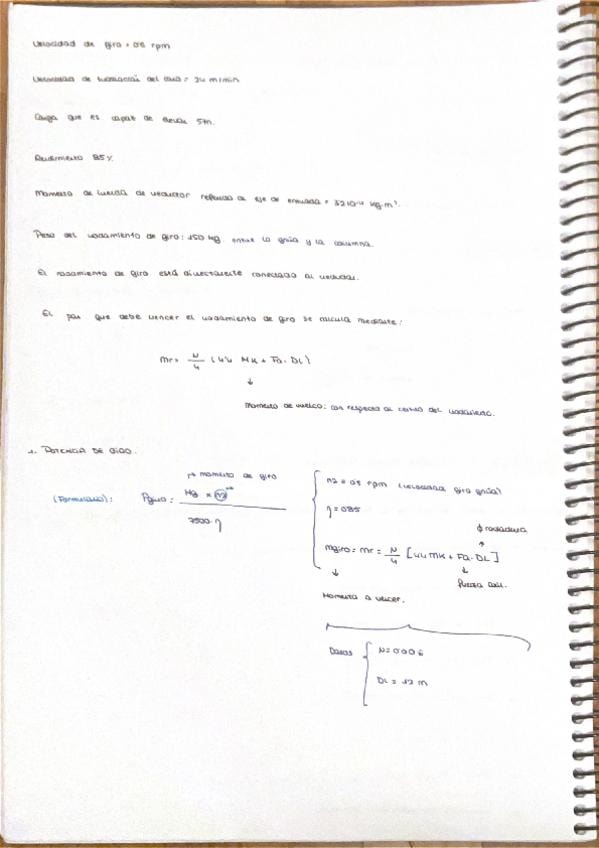 Velocidad de giro = 0'8 rpm
Velocidad de traslación del carro = 24 m/min
Carga que es capaz de elevar 5tn.
Rendimiento 85%
Momento de inercia de reductor referido al eje de entrada = kg·m².
Peso del rodamiento de giro: 150 kg entre la grúa y la columna.
El rodamiento de giro está directamente conectado al reductor.
El par que debe vencer el rodamiento de giro se calcula mediante:
Mr = N/4 (4'4 MK + Fa · DL)
↓
Momento de vuelco: con respecto al centro del rodamiento.
1. POTENCIA DE GIRO.
↱ momento de giro
(Formulario): Pgiro = Mg × n2 / 9500 · η
n2 = 0'8 rpm (velocidad giro grúa)
η = 0'85
φ rodadura
Mgiro = Mr = N/4 [4'4 MK + Fa · DL]
↓ fuerza axil.
Momento a vencer.
Datos { N = 0'006
DL = 1'2 m